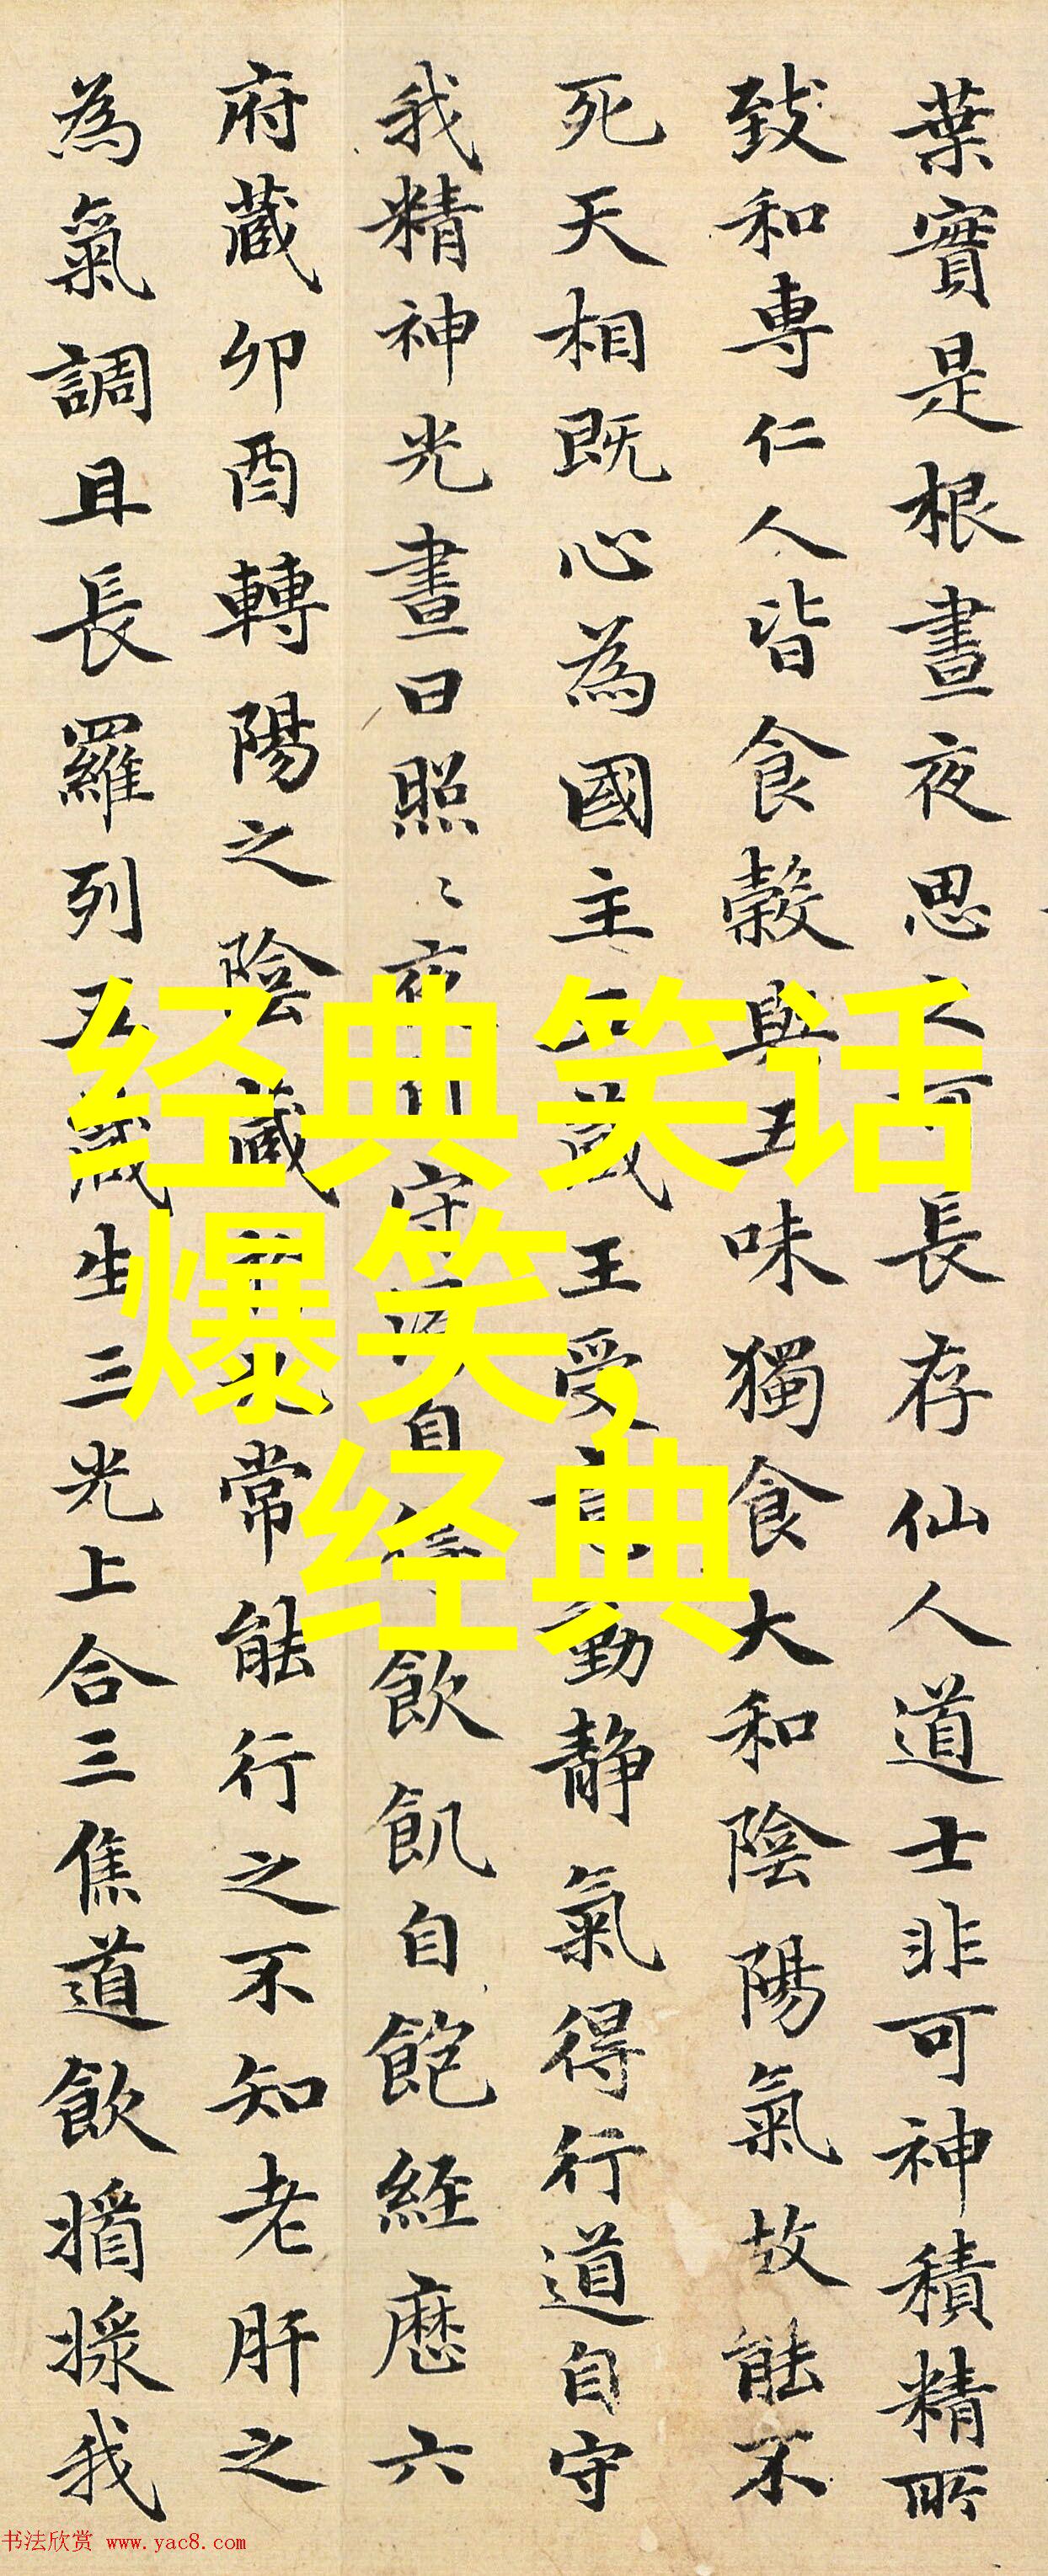 葉實是根晝夜思之可長存仙人道士非可神積精所
致和専仁人皆食穀與五味獨食大和陰陽氣故能不
死天相既心為國主五藏王受意動靜氣得行道自守
我精神光晝日照〻夜守自飲飢自飽經歷六
府藏卯酉轉陽之陰藏常能行之不知老肝之
為氣調且長羅列五藏生三光上合三焦道飲㨡採我
经典笑话
爆笑,
经典
书法欣赏 www.yac8.com